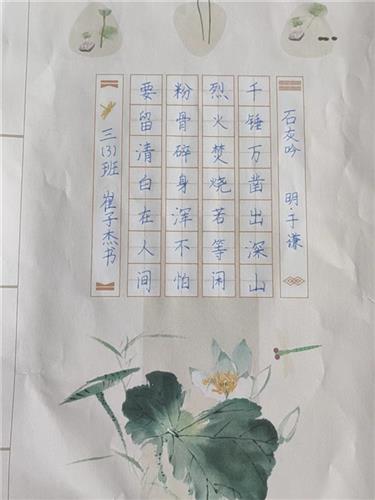 石灰吟 明·于谦
千锤万凿出深山
烈火焚烧若等闲
粉骨碎身浑不怕
要留清白在人间
三(3)班 崔子杰书